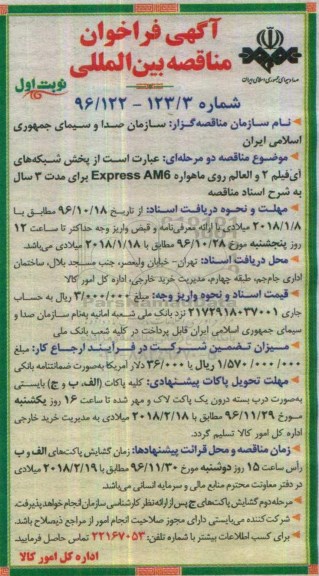 آگهی فراخوان
مناقصه بین المللی
صدا و سیمای جمهوری اسلامی ایران
نوبت اول
شماره ۱۲۳/۳ - ۹۶/۱۲۲
نـام سازمان مناقصه‌گزار: سازمان صدا و سیمای جمهوری
اسلامی ایران
موضوع مناقصه دو مرحله‌ای: عبارت است از پخش شبکه‌های
آی‌فیلم ۲ و العالم روی ماهواره Express AM6 برای مدت ۳ سال
به شرح اسناد مناقصه
مهلت و نحوه دریافت اسناد: از تاریخ ۹۶/۱۰/۱۸ مطابق با
۲۰۱۸/۱/۸ میلادی با ارائه معرفی‌نامه و قبض واریز وجه حداکثر تا ساعت ۱۲
روز پنجشنبه مورخ ۹۶/۱۰/۲۸ مطابق با ۲۰۱۸/۱/۱۸ میلادی می‌باشد.
محل دریافت اسناد: تهران- خیابان ولیعصر، جنب مسجد بلال، ساختمان
اداری جام‌جم، طبقه چهارم، مدیریت خرید خارجی، اداره کل امور کالا
قیمت اسناد و نحوه واریز وجه: مبلغ ۳/۰۰۰/۰۰۰ ریال به حساب
جاری ۲۱۷۲۹۱۸۰۳۷۰۰۱ نزد بانک ملی شعبه امانیه به‌نام سازمان صدا و
سیمای جمهوری اسلامی ایران قابل پرداخت در کلیه شعب بانک ملی
میـزان تضمین شـرکت در فراینـد ارجاع کار: مبلغ
۱/۵۷۰/۰۰۰/۰۰۰ ریال یا ۳۶/۰۰۰ دلار آمریکا به‌صورت ضمانتنامه بانکی
مهلت تحویل پاکات پیشنهادی: کلیه پاکات (الف، ب و ج) بایستی
به‌صورت درب بسته درون یک پاکت لاک و مهر شده تا ساعت ۱۶ روز یکشنبه
مورخ ۹۶/۱۱/۲۹ مطابق با ۲۰۱۸/۲/۱۸ میلادی به مدیریت خرید خارجی
اداره کل امور کالا تسلیم گردد.
زمان مناقصه و محل قرائت پیشنهادها: زمان گشایش پاکت‌های الف و ب
رأس ساعت ۱۵ روز دوشنبه مورخ ۹۶/۱۱/۳۰ مطابق با ۲۰۱۸/۲/۱۹ میلادی
در دفتر معاونت محترم منابع مالی و سرمایه انسانی می‌باشد.
مرحله دوم گشایش پاکت‌های ج پس از ارائه نظر کارشناسی سازمان انجام خواهد پذیرفت.
شرکت کننده می‌بایستی دارای مجوز صلاحیت انجام امور از مراجع ذیصلاح باشد.
برای کسب اطلاعات بیشتر با شماره تلفن: ۲۲۱۶۷۰۵۳ تماس حاصل فرمایید.
اداره کل امور کالا